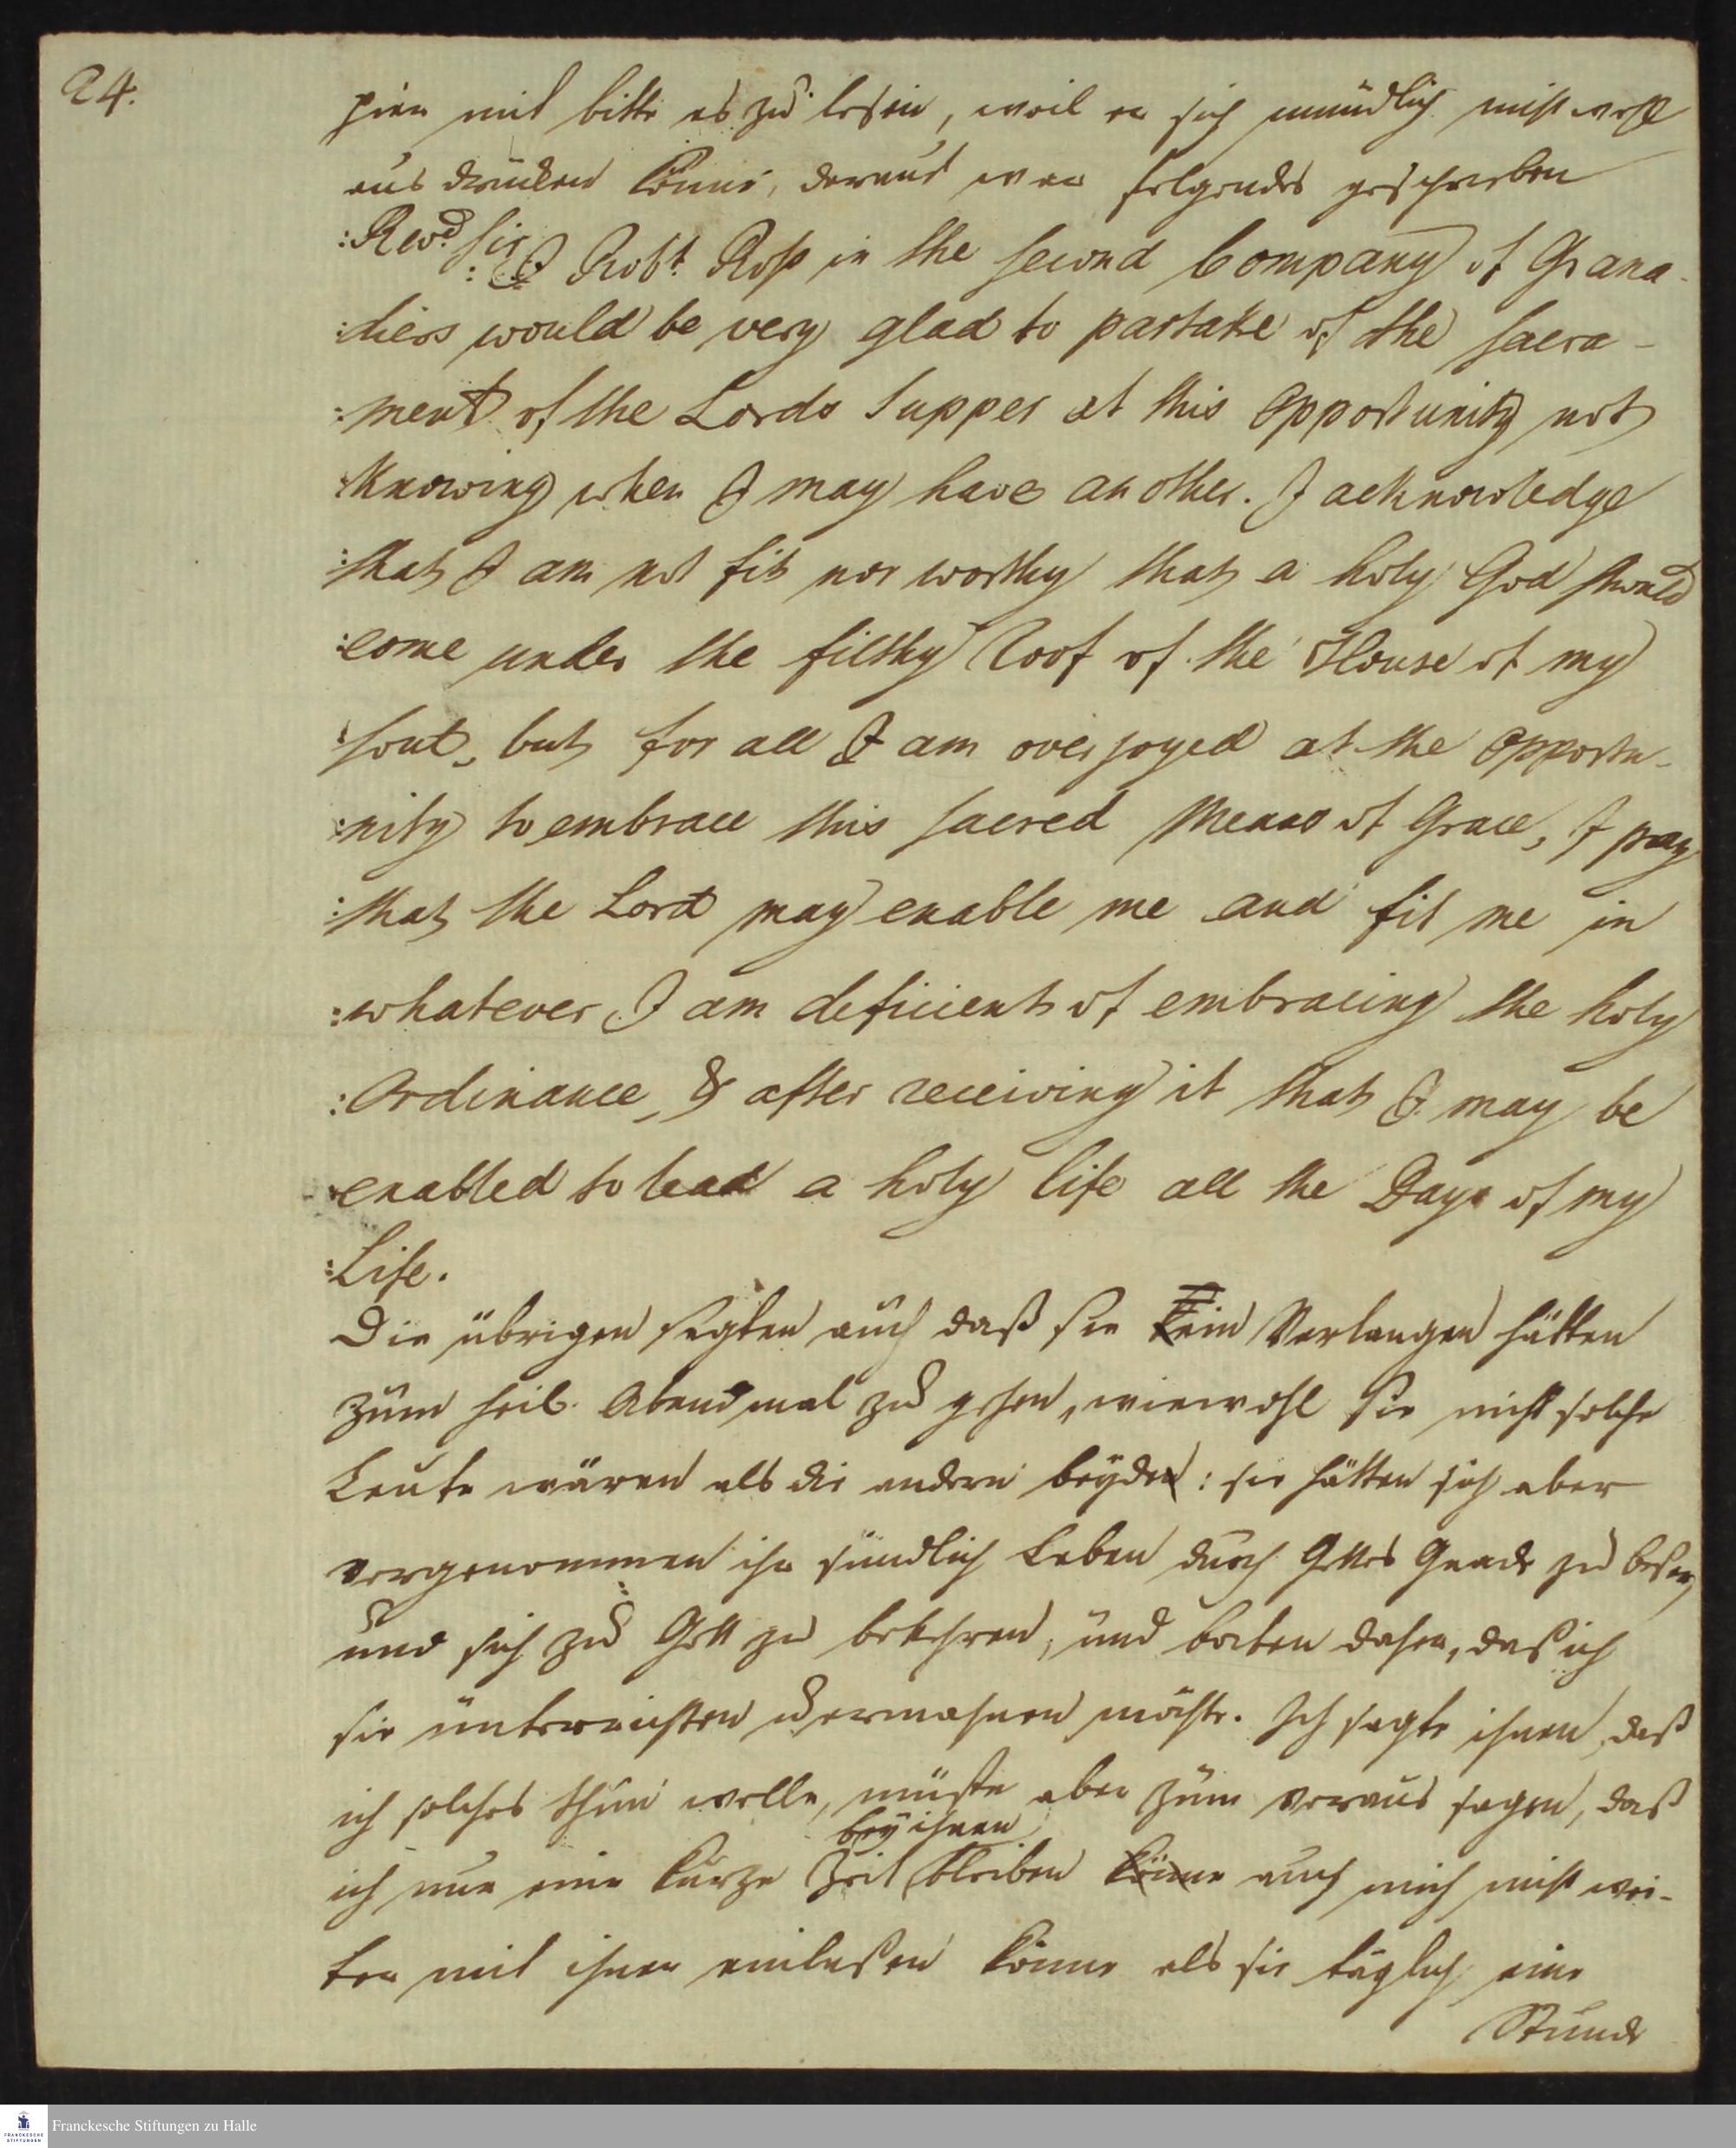 24.
pier mit bitte es zu lesen, weil er sich mündlich nicht wohl
ausdrücken könne, darauf war folgendes geschrieben
:Revd. Sir
: I Robt. Ross in the second Company of Grana-
:diers would be very glad to partake of the sacra-
:ment of the Lords Supper at this Opportunity not
:knowing when I may have another. I acknowledge
:that I am not fit nor worthy that a holy God should
:come under the filthy Roof of the House of my
:soul, but for all I am overjoyed at the Opportu-
:nity to embrace this sacred Means of Grace, I pray
:that the Lord may enable me and fit me in
:whatever I am deficient of embracing the holy
:Ordinance, & after receiving it that I may be
:enabled to lead a holy life all the Days of my
:Life.
Die übrigen sagten auch daß sie ein Verlangen hätten
zum heil. Abendmal zu gehen, wiewohl sie nicht solche
Leute wären als die andern beyde: sie hätten sich aber
vorgenommen ihr sündlich Leben durch Gottes Gnade zu beßern,
und sich zu Gott zu bekehren, und baten daher, daß ich
sie unterrichten u ermahnen möchte. Ich sagte ihnen, daß
ich solches thun wolle, müste aber zum voraus sagen, daß
bey ihnen
ich nur eine kurze Zeit bleiben könne auch mich nicht wei-
ter mit ihnen einlaßen könne als sie täglich eine
Stunde
Franckesche Stiftungen zu Halle
FRANCKESCHE STIFTUNGEN